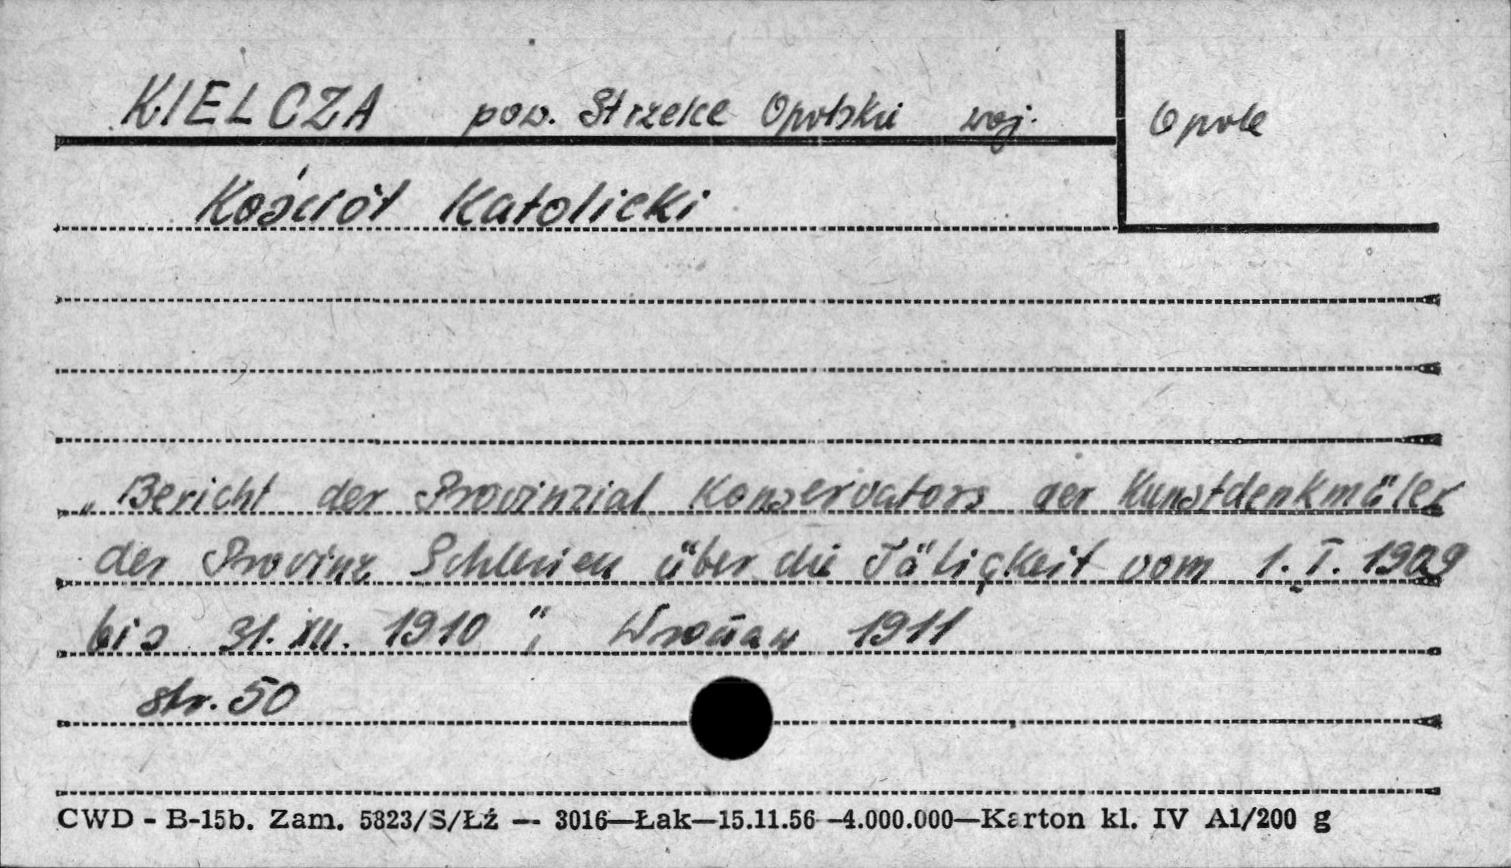 KIELCZA pow. Strzelce Opolskie woj. Opole
Kościół Katolicki
„Bericht der Provinzial Konservators der Kunstdenkmäler
der Provinz Schlesien über die Tätigkeit vom 1. I. 1909
bis 31. XII. 1910", Wrocław 1911
str. 50
CWD - B-15b. Zam. 5823/S/Łź — 3016—Łak—15.11.56—4.000.000—Karton kl. IV A1/200 g